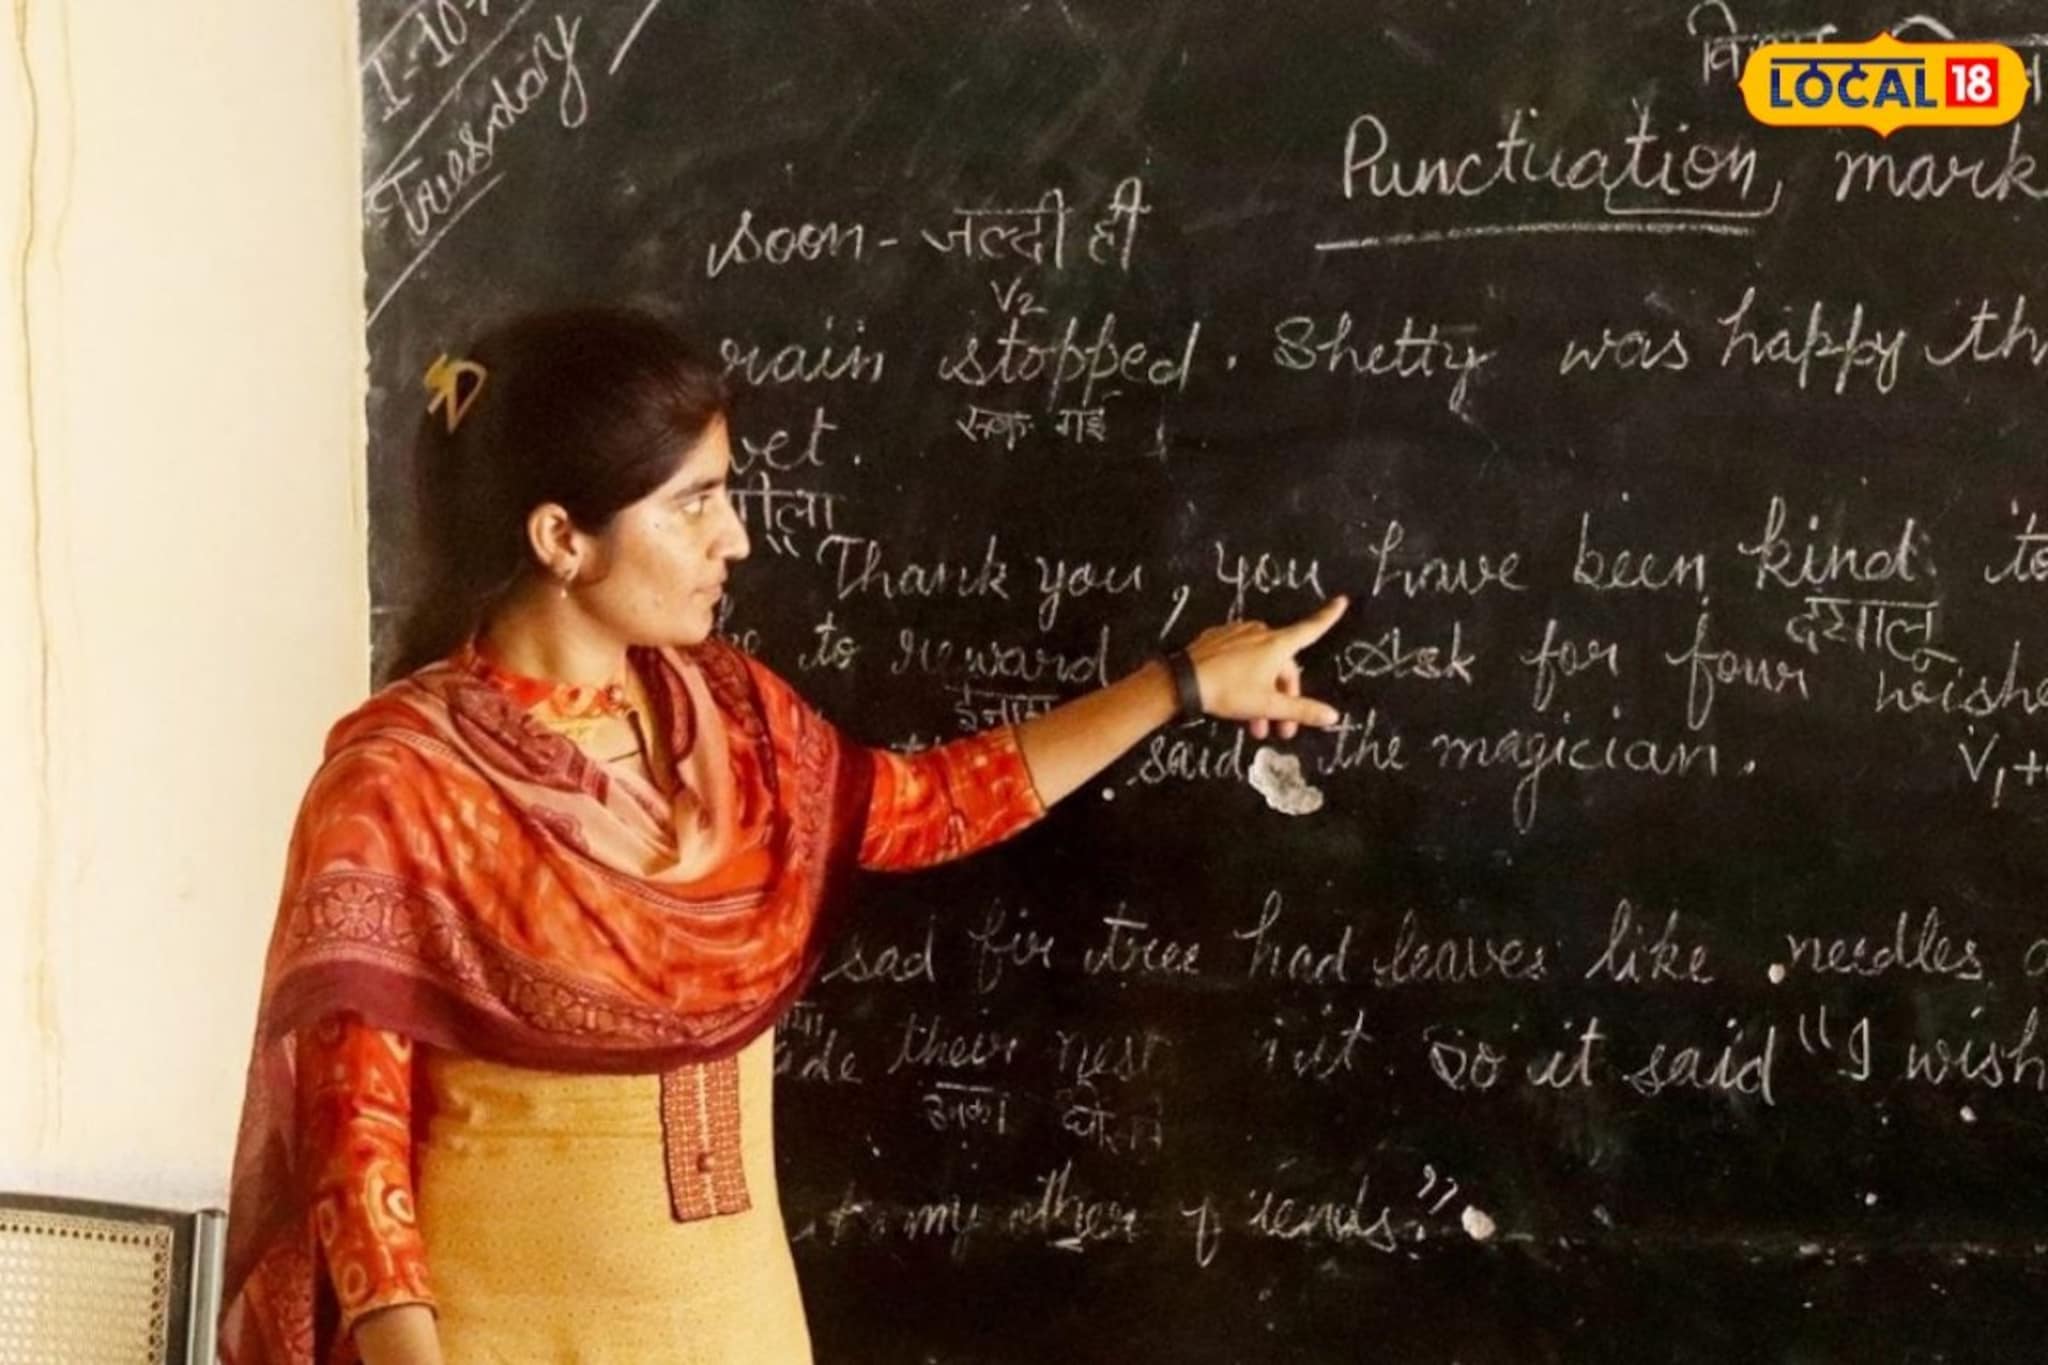 Tuesday
LOCAL 18
Punctuation mark
soon - जल्दी ही
V2
rain stopped. Shetty was happy th
रूक गई
wet.
गीला
"Thank you, you have been kind to
दयालू
to reward Ask for four wishe
इनाम
said the magician.
V1+
sad fir tree had leaves like needles
their nest it. So it said "I wish
उनका
to my other friends."